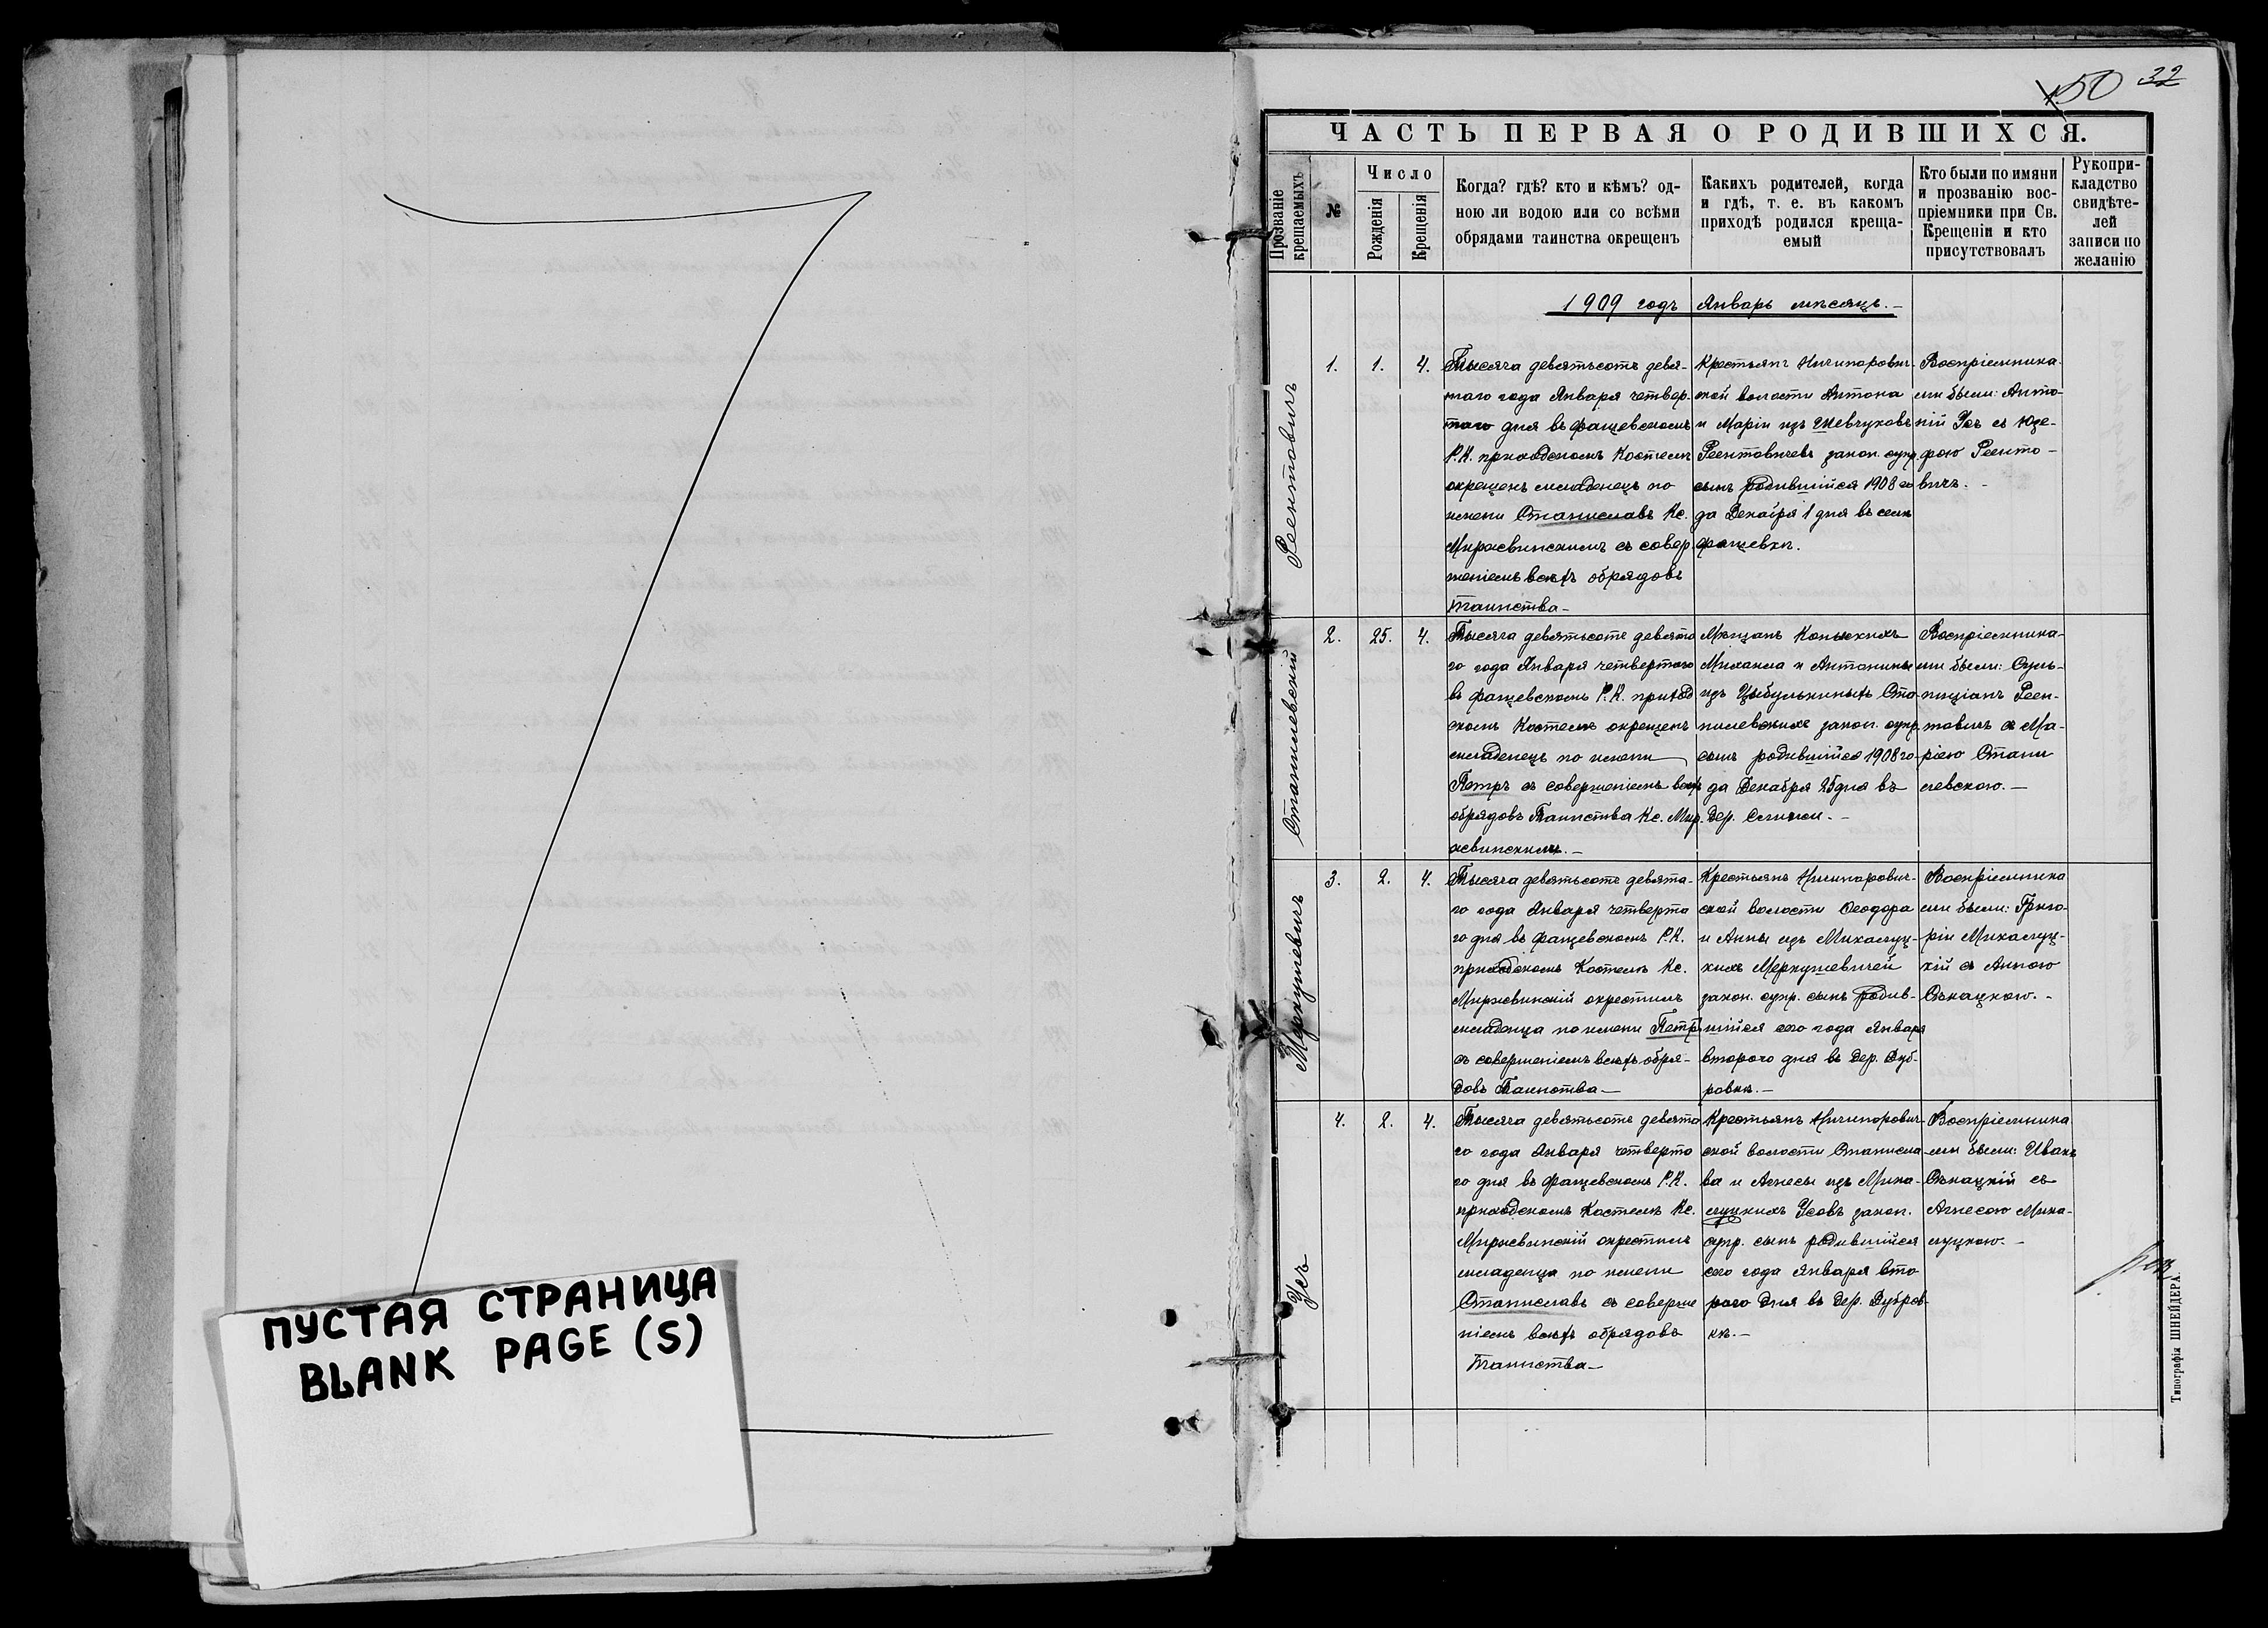 ПУСТАЯ СТРАНИЦА
BLANK PAGE (S)
50 32
ЧАСТЬ ПЕРВАЯ О РОДИВШИХСЯ.
Прозваніе крещаемыхъ
№
Число
Рожденія
Крещенія
Когда? гдѣ? кто и кѣмъ? од-
ною ли водою или со всѣми
обрядами таинства окрещенъ
Какихъ родителей, когда
и гдѣ, т. е. въ какомъ
приходѣ родился креща-
емый
Кто были по имяни
и прозванію вос-
пріемники при Св.
Крещеніи и кто
присутствовалъ
Рукопри-
кладство
свидѣте-
лей
записи по
желанію
1909 годъ Январь мѣсяцъ.-
Реентовичъ
1. 1. 4.
Тысяча девятьсотъ девя-
таго года Января четвер-
таго дня въ Фащевскомъ
Р.К. приходскомъ Костелѣ
окрещенъ младенецъ по
имени Станиславъ Кс.
съ совер
шеніемъ всѣхъ обрядовъ
Таинства-
Крестьянъ Ничипорович-
ской волости Антона
и Маріи изъ Шевчуковъ
Реентовичевъ закон. супр.
сынъ родившійся 1908 го
да Декабря 1 дня въ селѣ
Фащевкѣ.
Воспріемника-
ми были: Анто-
ній Усъ съ Юзе-
фою Реенто-
вичъ.-
Станилевскій
2. 25. 4.
Тысяча девятьсотъ девято
го года Января четвертаго
въ Фащевскомъ Р.К. приход
скомъ Костелѣ окрещенъ
младенецъ по имени
Петръ съ совершеніемъ всѣхъ
обрядовъ Таинства Кс.
Мѣщанъ Копысскихъ
Михаила и Антонины
изъ Цыбулькиныхъ Ста-
нилевскихъ закон. супр.
сынъ родившійся 1908 го-
да Декабря 25 дня въ
дер.
Воспріемника-
ми были: Суль-
пиціанъ Реен-
товичъ съ Ма-
ріею Стани
левскою.-
Меркушевичъ
3. 2. 4.
Тысяча девятьсотъ девята-
го года Января четверта
го дня въ Фащевскомъ Р.К.
приходскомъ Костелѣ Кс.
окрестилъ
младенца по имени Петръ
съ совершеніемъ всѣхъ обря-
довъ Таинства-
Крестьянъ Ничипорович-
ской волости Ѳеодора
и Анны изъ Михалуц-
кихъ Меркушевичей
закон. супр. сынъ родив-
шійся сего года Января
второго дня въ дер. Дуб-
ровкѣ.-
Воспріемника
ми были: Григо-
рій Михалуц-
кій съ Анною
Сѣнацкою.-
Усъ
4. 2. 4.
Тысяча девятьсотъ девята
го года Января четверто
го дня въ Фащевскомъ Р.К.
приходскомъ Костелѣ Кс.
окрестилъ
младенца по имени
Станиславъ съ соверше
ніемъ всѣхъ обрядовъ
Таинства-
Крестьянъ Ничипорович-
ской волости Станисла
ва и Агнесы изъ Миха-
луцкихъ Усовъ закон.
супр. сынъ родившійся
сего года Января вто
рого дня въ дер. Дубров-
кѣ.-
Воспріемника
ми были: Иванъ
Сѣнацкій съ
Агнесою Миха-
луцкою.-
Типографія ШНЕЙДЕРА.